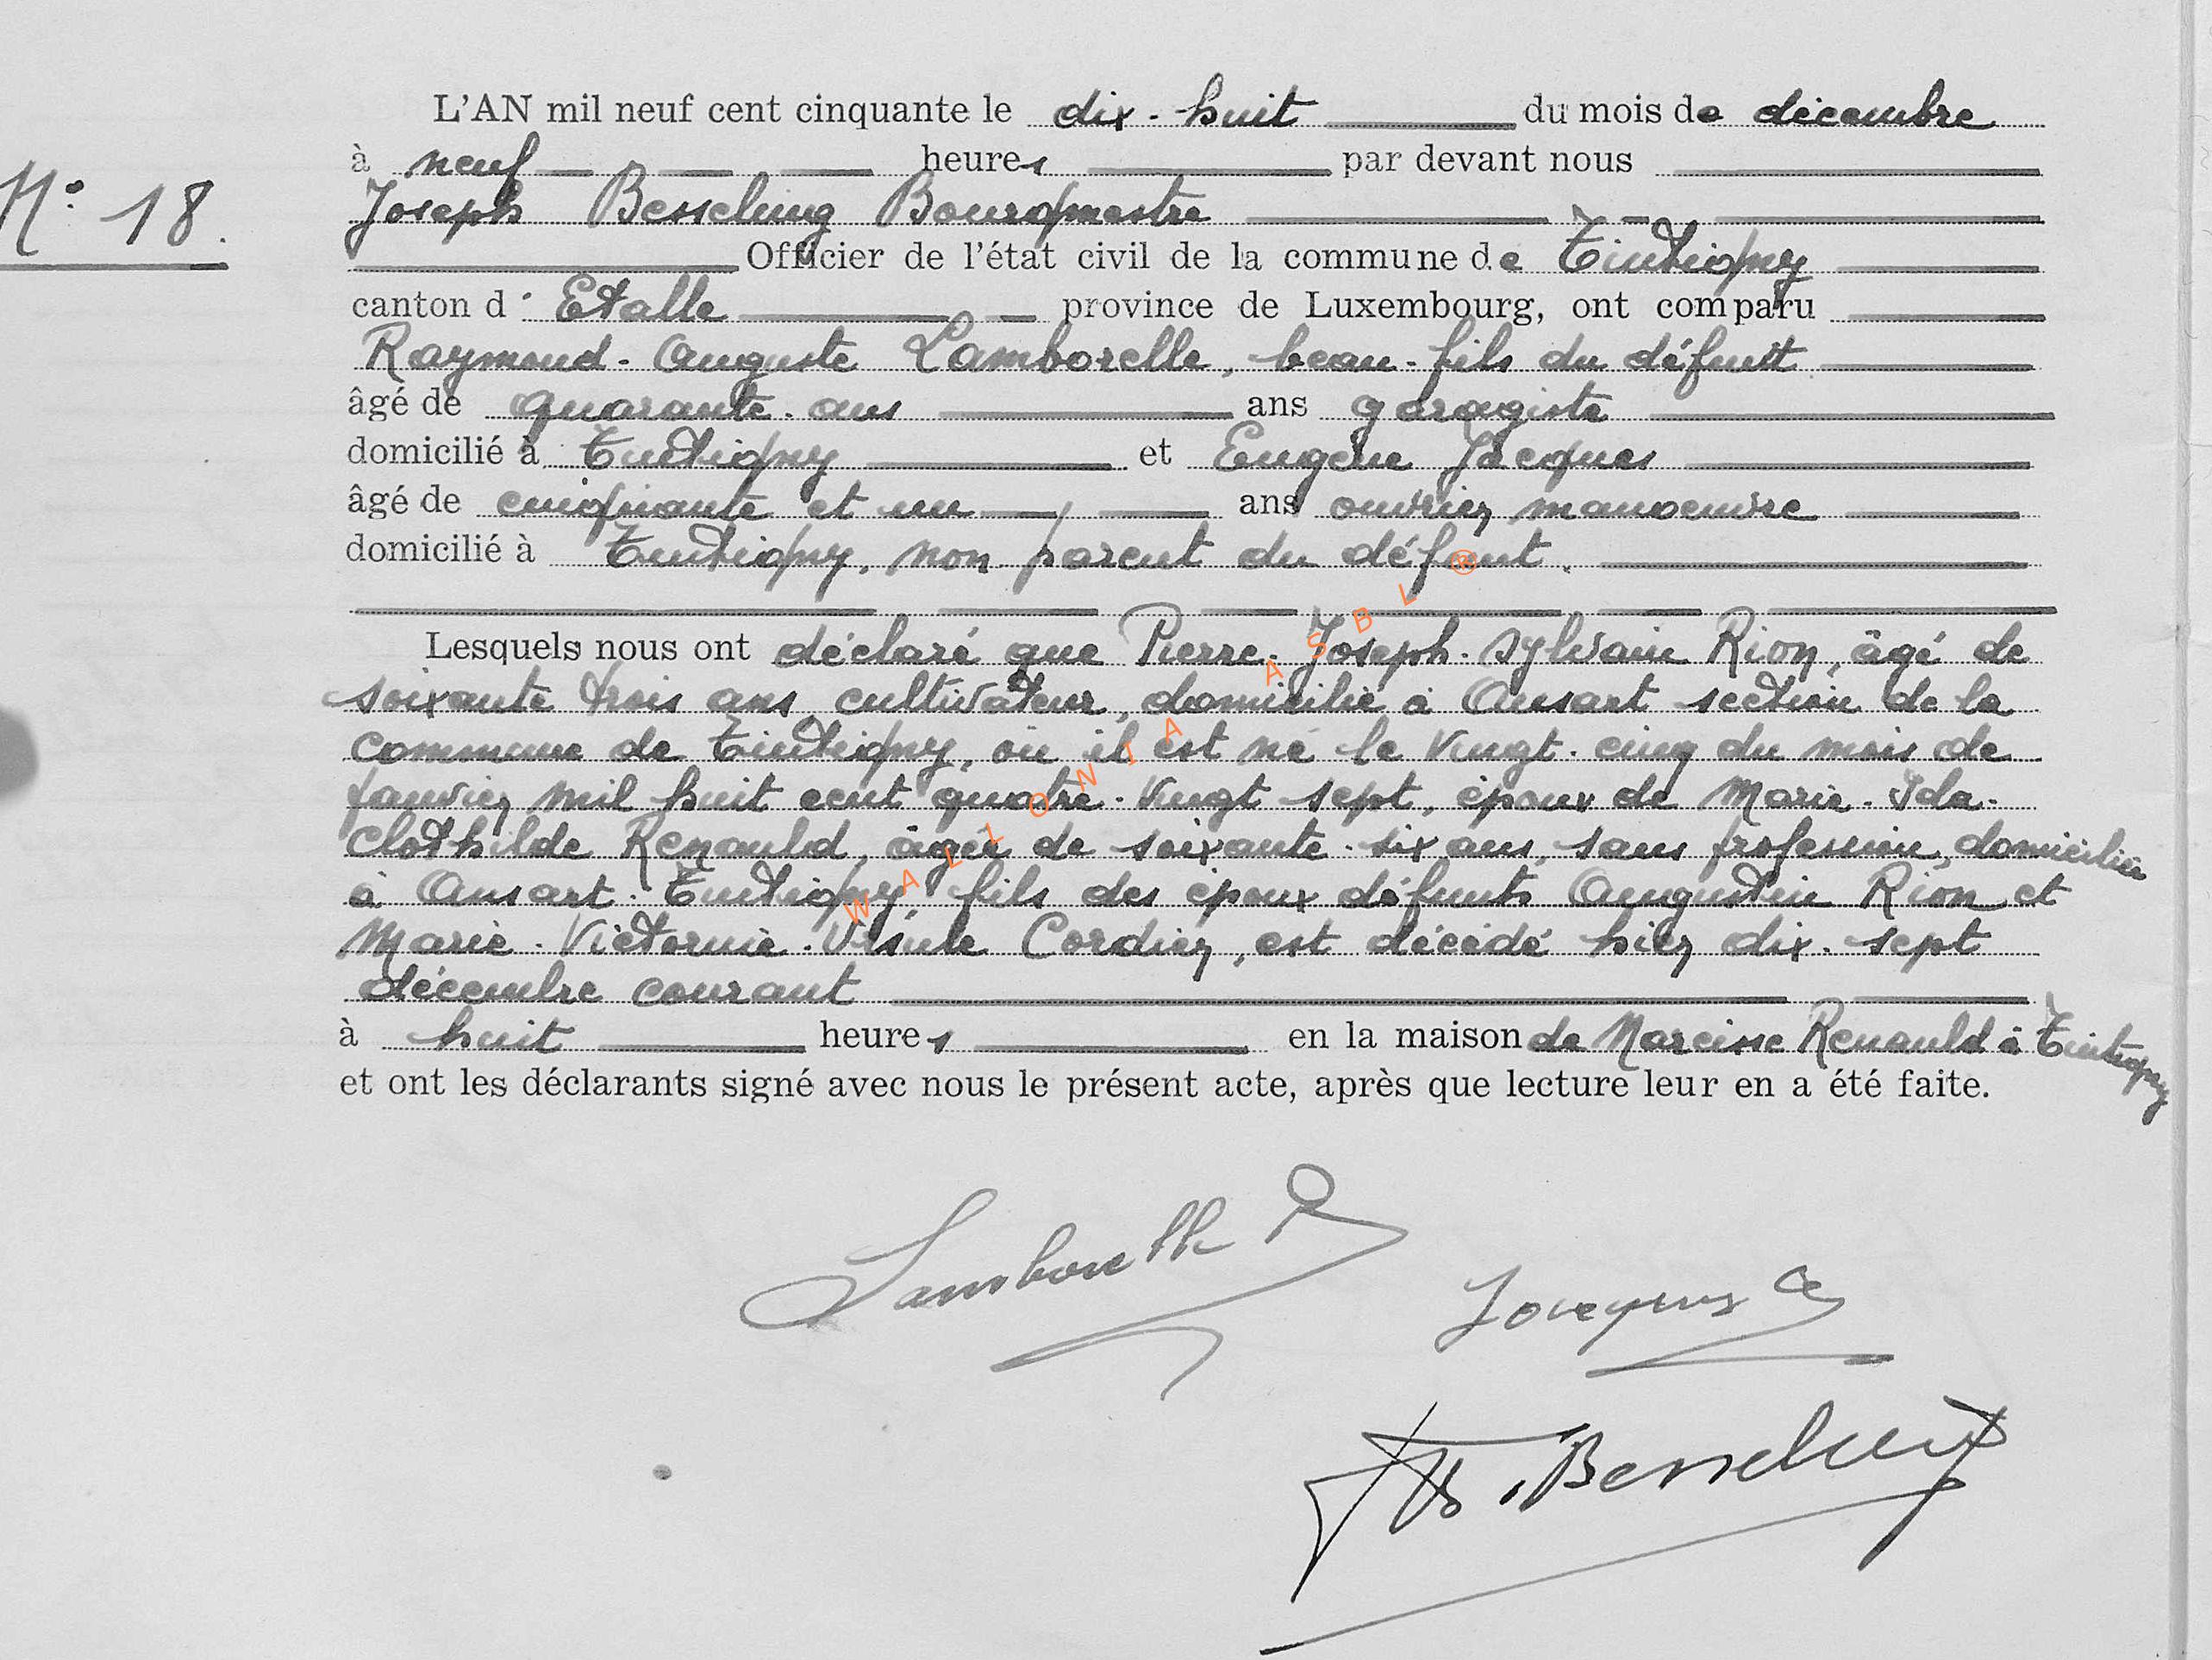 L'AN mil neuf cent cinquante le dix-huit du mois de décembre
à neuf heures par devant nous
N° 18.
Joseph Besseling Bourgmestre
Officier de l'état civil de la commune de Tintigny
canton d'Etalle province de Luxembourg, ont comparu
Raymond-Auguste Lamborelle, beau-fils du défunt
âgé de quarante-ans ans garagiste
domicilié à Tintigny et Eugène Jacques
âgé de cinquante et un ans ouvrier manoeuvre
domicilié à Tintigny, non parent du défunt.
Lesquels nous ont déclaré que Pierre-Joseph-Sylvain Rion, âgé de
soixante trois ans, cultivateur, domicilié à Ansart section de la
commune de Tintigny, où il est né le vingt-cinq du mois de
janvier mil huit cent quatre-vingt sept, époux de Marie-Ida-
Clothilde Renauld, âgée de soixante-six ans, sans profession, domiciliée
à Ansart-Tintigny, fils des époux défunts Augustin Rion et
Marie-Victorine-Ursule Cordier, est décédé hier dix-sept
décembre courant
à huit heures en la maison de Narcisse Renauld à Tintigny
et ont les déclarants signé avec nous le présent acte, après que lecture leur en a été faite.
Lamborelle R
Jacques E
Jos. Besseling
WALLONIA ASBL ®